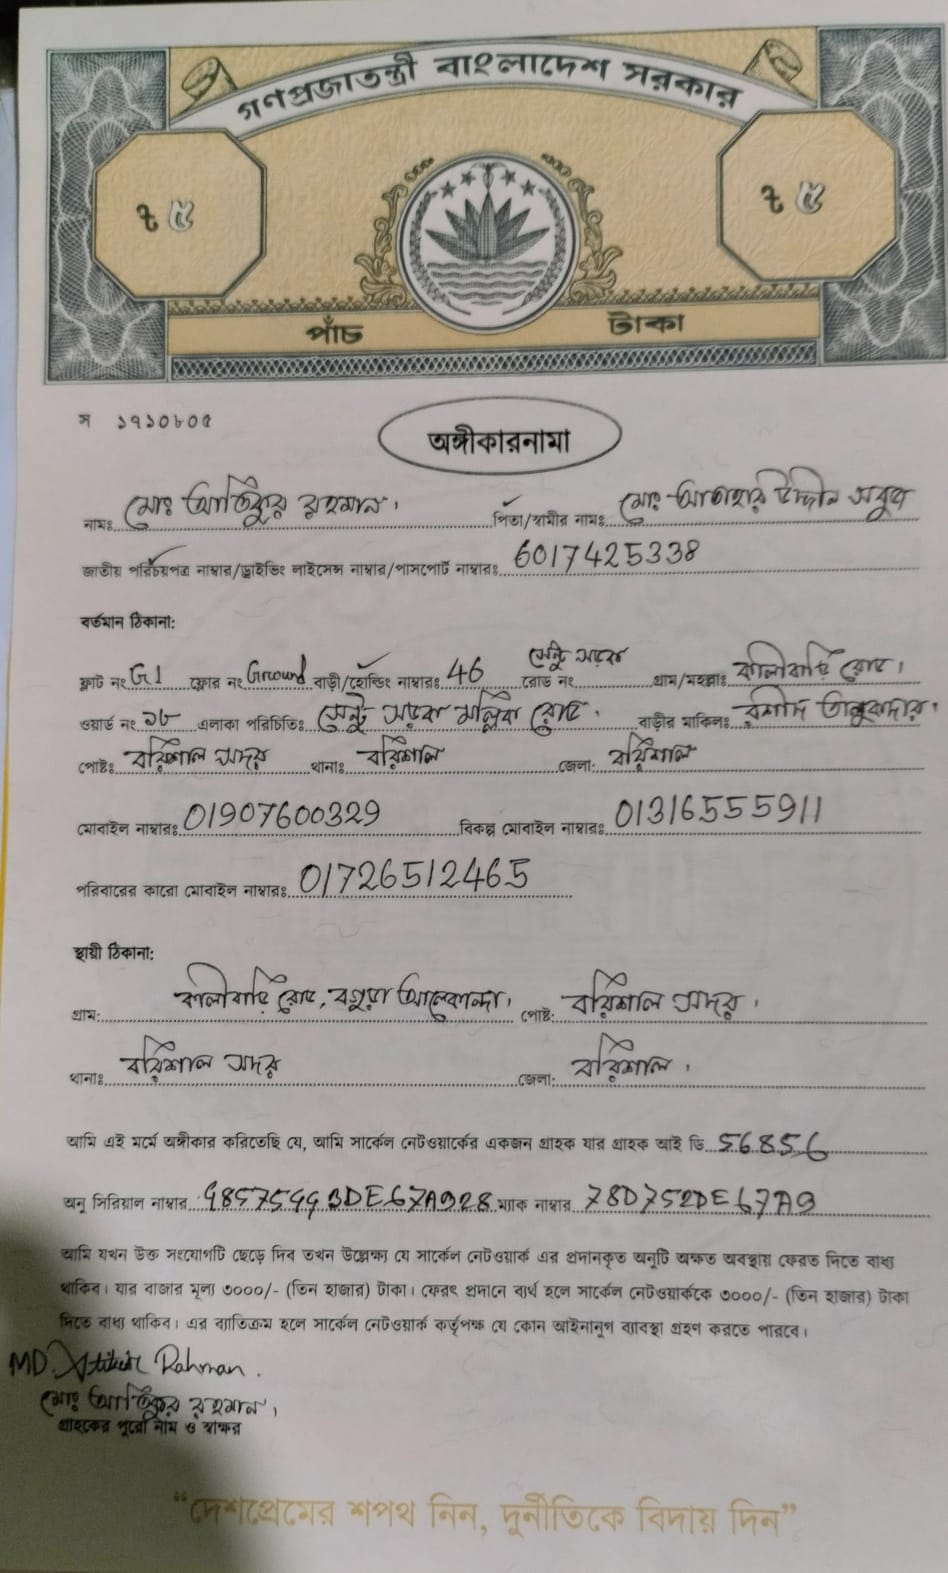 গণপ্রজাতন্ত্রী বাংলাদেশ সরকার
৳ ৫ ৳ ৫
পাঁচ টাকা
স ১৭১০৮০৫
অঙ্গীকারনামা
নামঃ মোঃ আতিকুর রহমান। পিতা/স্বামীর নামঃ মোঃ আজাহার উদ্দীন সবুজ
জাতীয় পরিচয়পত্র নাম্বার/ড্রাইভিং লাইসেন্স নাম্বার/পাসপোর্ট নাম্বারঃ 6017425338
বর্তমান ঠিকানা:
ফ্লাট নং G1 ফ্লোর নং Ground বাড়ী/হোল্ডিং নাম্বারঃ 46 রোড নং সেন্টু সড়ক গ্রাম/মহল্লাঃ কালীবাড়ি রোড।
ওয়ার্ড নং ১৮ এলাকা পরিচিতিঃ সেন্টু সড়ক মল্লিক রোড। বাড়ীর মালিকঃ রশীদ তালুকদার।
পোষ্টঃ বরিশাল সদর থানাঃ বরিশাল জেলা: বরিশাল
মোবাইল নাম্বারঃ 01907600329 বিকল্প মোবাইল নাম্বারঃ 01316555911
পরিবারের কারো মোবাইল নাম্বারঃ 01726512465
স্থায়ী ঠিকানা:
গ্রাম: কালীবাড়ি রোড, বগুড়া আলেকান্দা। পোষ্ট: বরিশাল সদর।
থানাঃ বরিশাল সদর জেলা: বরিশাল।
আমি এই মর্মে অঙ্গীকার করিতেছি যে, আমি সার্কেল নেটওয়ার্কের একজন গ্রাহক যার গ্রাহক আই ডি 56856
অনু সিরিয়াল নাম্বার ম্যাক নাম্বার 78D752DE67A9
আমি যখন উক্ত সংযোগটি ছেড়ে দিব তখন উল্লেক্ষ্য যে সার্কেল নেটওয়ার্ক এর প্রদানকৃত অনুটি অক্ষত অবস্থায় ফেরত দিতে বাধ্য
থাকিব। যার বাজার মূল্য ৩০০০/- (তিন হাজার) টাকা। ফেরৎ প্রদানে ব্যর্থ হলে সার্কেল নেটওয়ার্ককে ৩০০০/- (তিন হাজার) টাকা
দিতে বাধ্য থাকিব। এর ব্যাতিক্রম হলে সার্কেল নেটওয়ার্ক কর্তৃপক্ষ যে কোন আইনানুগ ব্যাবস্থা গ্রহণ করতে পারবে।
MD. Atikur Rahman.
মোঃ আতিকুর রহমান।
গ্রাহকের পুরো নাম ও স্বাক্ষর
“দেশপ্রেমের শপথ নিন, দুর্নীতিকে বিদায় দিন”